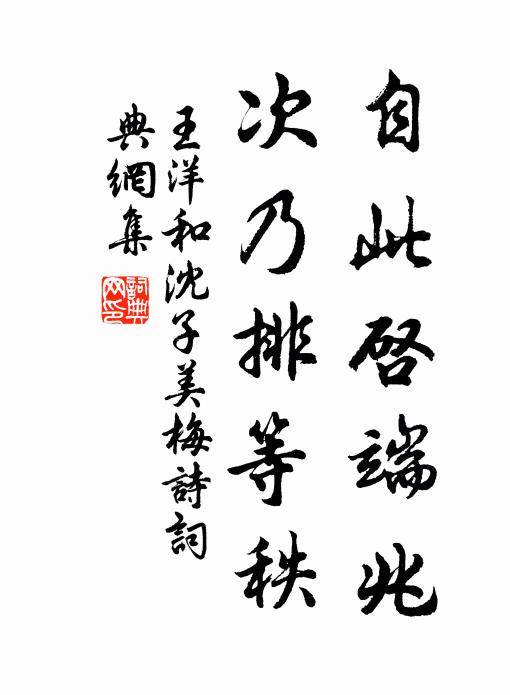 自此啓端兆
次乃排等秩
王洋和沈子美梅詩詞
典網集
詞典網印